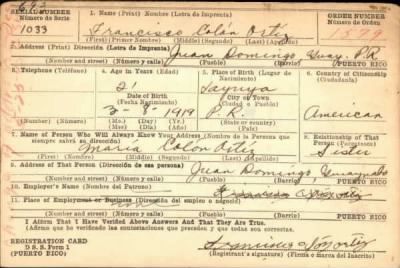 SERIAL NUMBER
Número de Serie
1. Name (Print) Nombre (Letra de Imprenta)
ORDER NUMBER
Número de Orden
1033
Francisco Colón Ortiz
(First) (Primer Nombre) (Middle) (Segundo) (Last) (Apellido)
2. Address (Print) Dirección (Letra de Imprenta)
Juan Domingo Guay. P.R.
(Number and street) (Número y calle) (Town) (Pueblo) (Barrio) PUERTO RICO
3. Telephone (Teléfono)
4. Age in Years (Edad)
5. Place of Birth (Lugar de Nacimiento)
6. Country of Citizenship
(Ciudadanía)
21
Date of Birth
(Fecha Nacimiento)
Jayuya
City or Town
(Ciudad o Pueblo)
3-9-1919
P.R.
American
(Mo.) (Day) (Yr.)
(Mes) (Día) (Año)
(State or country)
7. Name of Person Who Will Always Know Your Address (Nombre de la Persona que
siempre sabrá su dirección)
8. Relationship of That Person
Maria Colon Ortiz
Sister
(First) (Nombre) (Middle) (Segundo) (Last) (Apellido)
9. Address of That Person (Dirección de esa persona)
Juan Domingo Guaynabo
(Number and street) (Número y calle) (Town) (Pueblo) (Barrio) PUERTO RICO
10. Employer's Name (Nombre del Patrono)
11. Place of Employment or Business (Dirección del empleo o negocio)
(Number and street) (Número y calle) (Town) (Pueblo) (Barrio) PUERTO RICO
I Affirm That I Have Verified Above Answers And That They Are True.
(Afirmo que he verificado las contestaciones que preceden y que todas son correctas.)
REGISTRATION CARD
D. S. S. Form 1
(PUERTO RICO)
(Registrant's signature) (Firma o marca del inscrito)